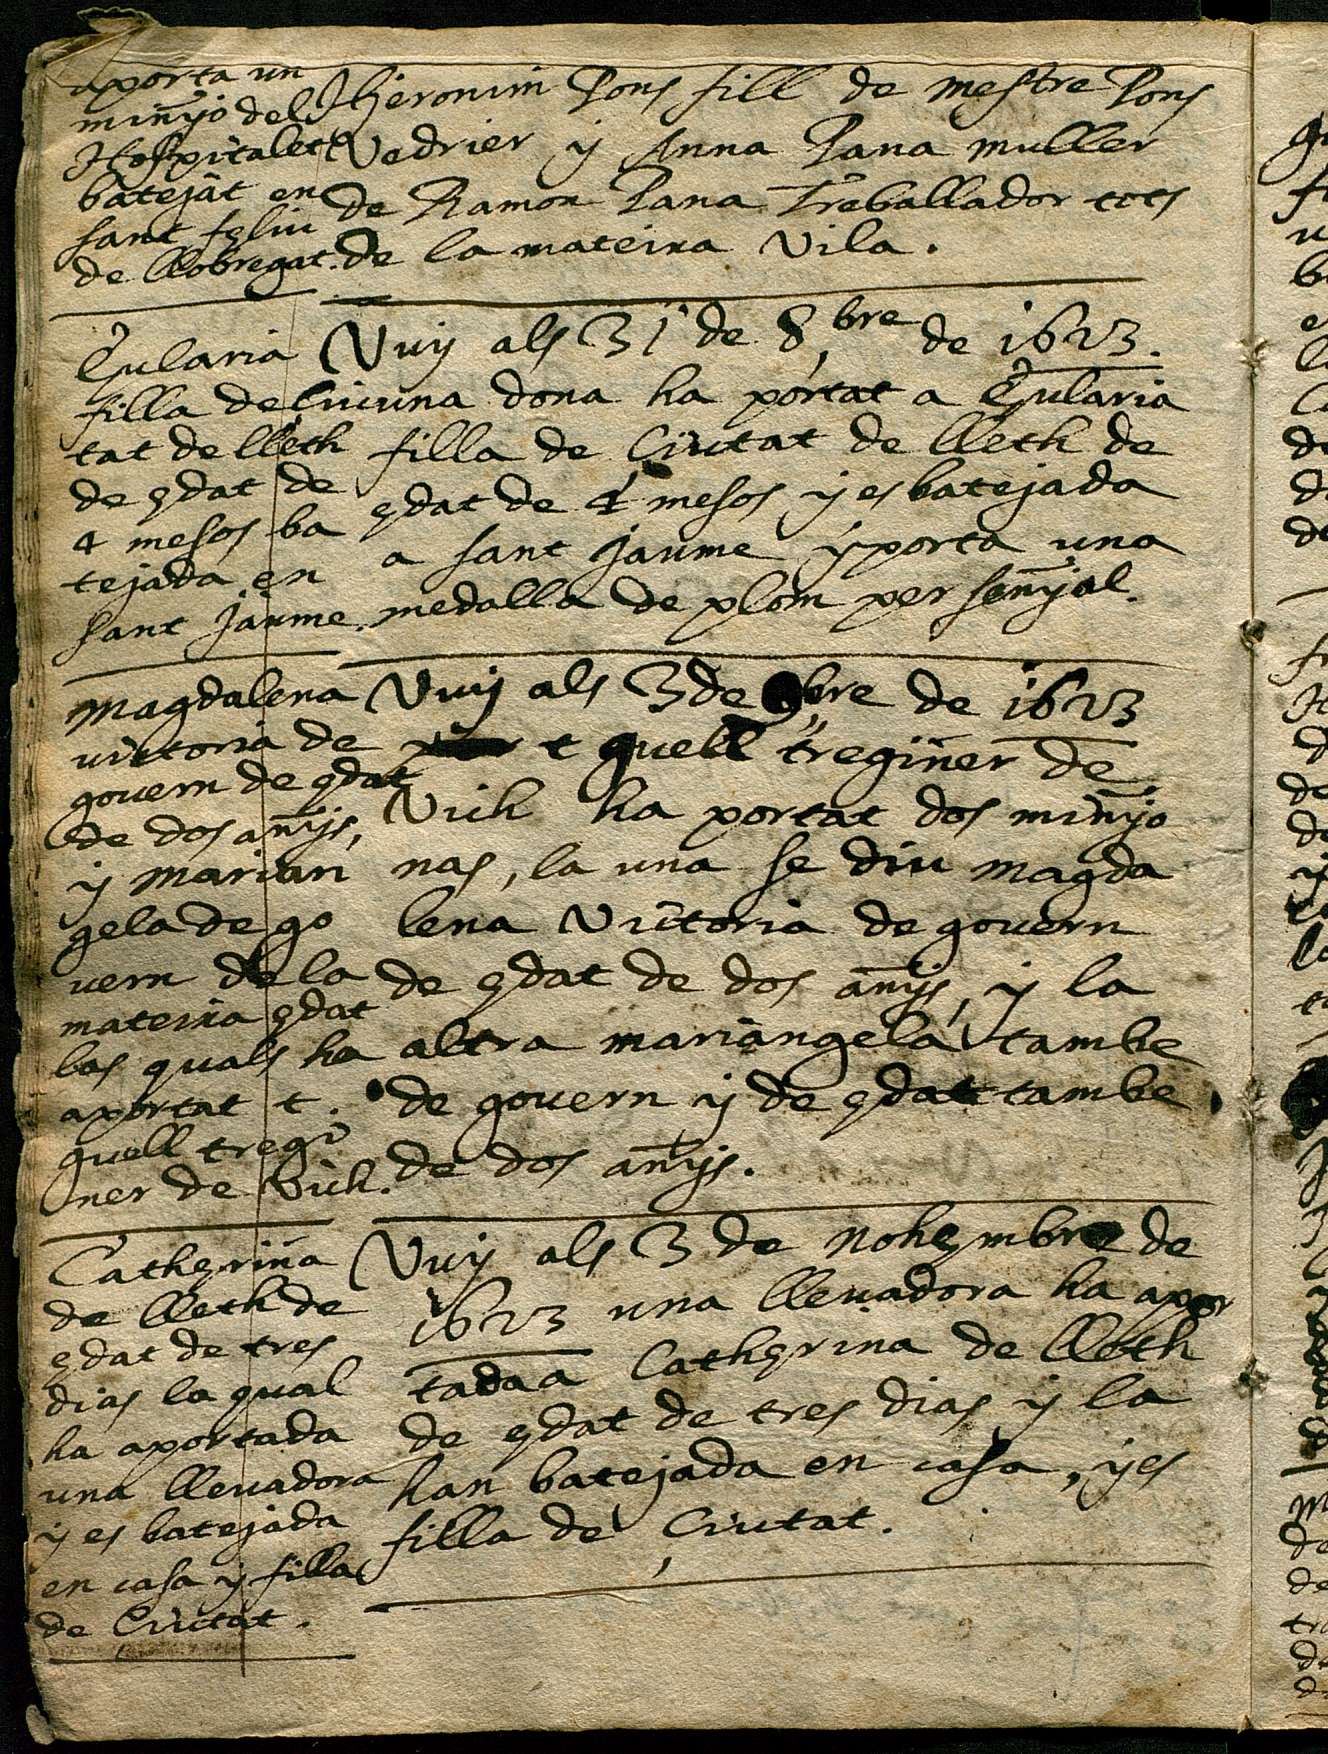 aporta un
minyo del
Hospitalet
batejat en
sant feliu
de llobregat.
Hieronim Pons fill de mestre Pons
Vedrier y Anna Pana muller
de Ramon Pana Treballador tots
de la mateixa Vila.
Eularia
filla de Ciu
tat de lleth
de edat de
4 mesos ba
tejada en
sant Jaume.
Vuy als 31 de 8bre de 1623.
una dona ha portat a Eularia
filla de Ciutat de lleth de
edat de 4 mesos y es batejada
a sant Jaume y porta una
medalla de plom per senyal.
Magdalena
victoria de
govern de edat
de dos anys,
y marian
gela de go
vern de la
mateixa edat
las quals ha
aportat t.
quell tregi
ner de Vich.
Vuy als 3 de 9bre de 1623
t quell treginer de
Vich ha portat dos minyo
nas, la una se diu magda
lena Victoria de govern
de edat de dos anys, y la
altra mariangela tambe
de govern y de edat tambe
de dos anys.
Catherina
de lleth de
edat de tres
dias la qual
ha aportada
una llevadora
y es batejada
en casa y filla
de Ciutat.
Vuy als 3 de nohembre de
1623 una llevadora ha apor
tada a Catherina de lleth
de edat de tres dias y la
han batejada en casa, y es
filla de Ciutat.